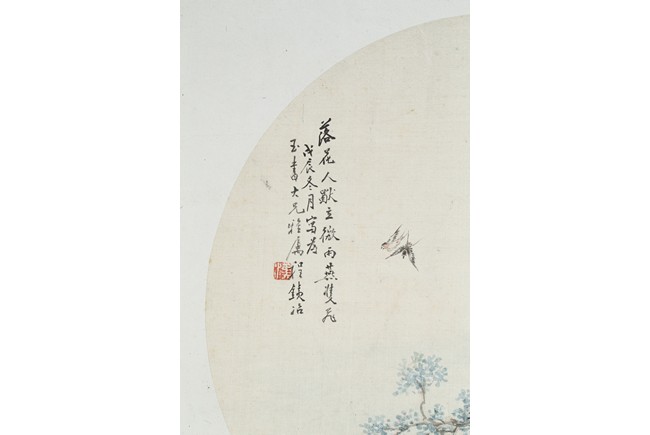 落花人獨立微雨燕雙飛
戊辰冬月寫
玉書大兄雅屬 程